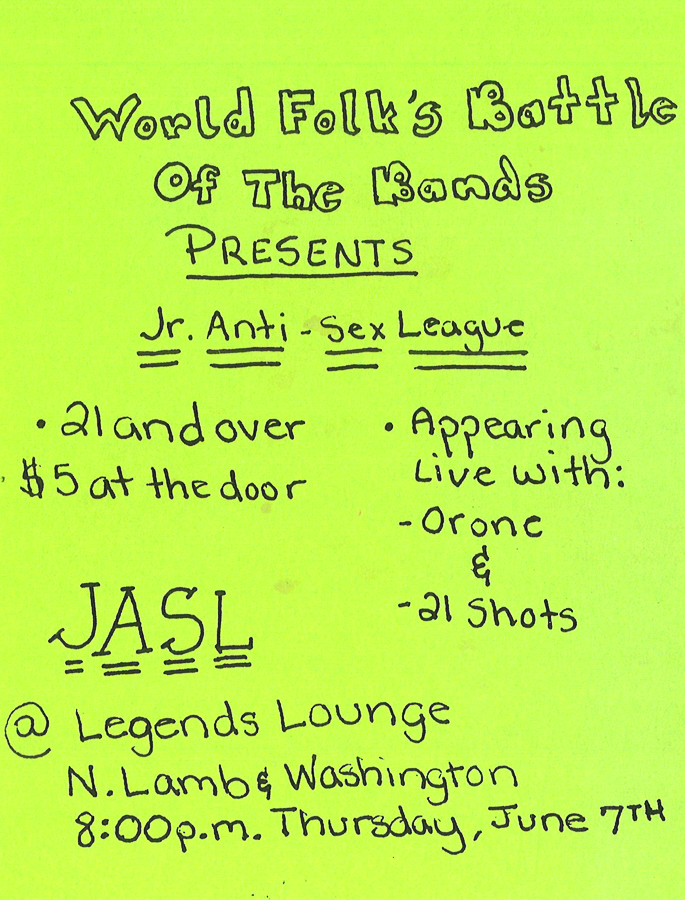 World Folk's Battle
Of The Bands
PRESENTS
Jr. Anti-Sex League
• 21 and over
$5 at the door
• Appearing
Live with:
-Orone
&
-21 Shots
JASL
@ Legends Lounge
N. Lamb & Washington
8:00p.m. Thursday, June 7TH